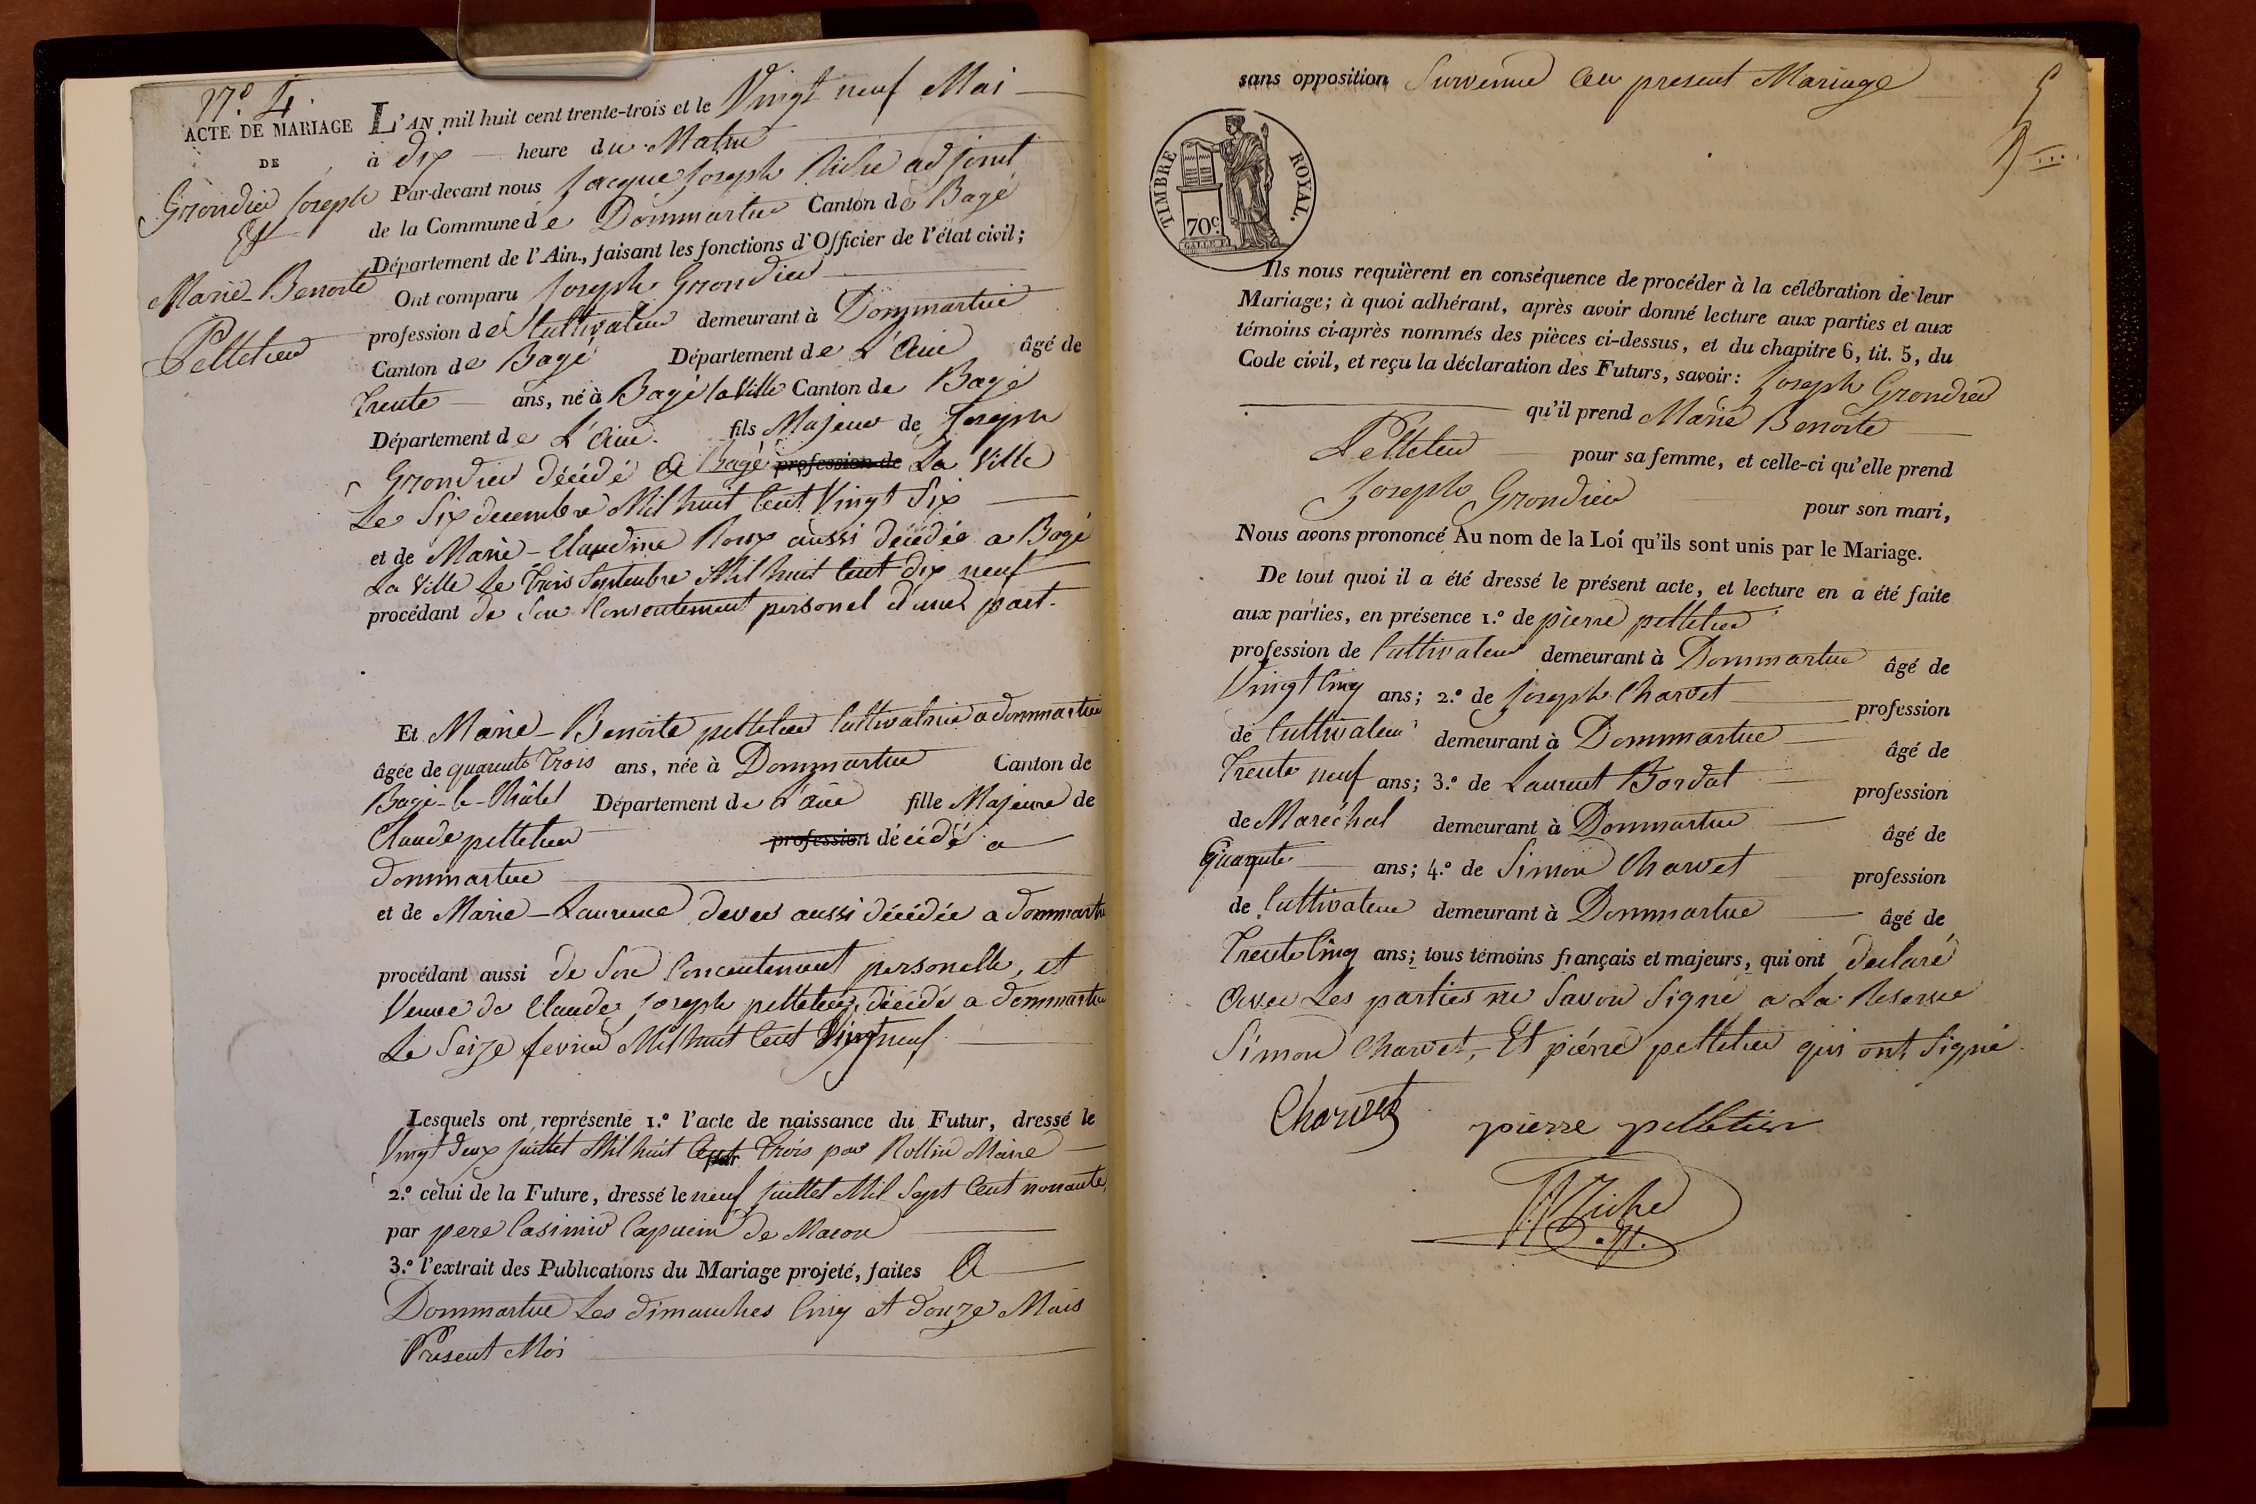 N.º 4.
ACTE DE MARIAGE
DE
Grondier Joseph
Et
Marie-Benoite
Pelletier
L'AN mil huit cent trente-trois et le Vingt neuf Mai
à dix heure du Matin
Par-devant nous Jacque Joseph Riche adjoint
de la Commune de Dommartin Canton de Bagé
Département de l'Ain, faisant les fonctions d'Officier de l'état civil;
Ont comparu Joseph Grondier
profession de Cultivateur demeurant à Dommartin
Canton de Bagé Département de L'Ain âgé de
Trente ans, né à Bagé la Ville Canton de Bagé
Département de L'Ain. fils Majeur de Joseph
Grondier décédé a Bagé profession de La Ville
Le Six decembre Mil huit Cent Vingt Six
et de Marie-Claudine Roux aussi décédée a Bagé
La Ville Le Trois Septembre Mil huit Cent dix neuf
procédant de Son Consentement personel d'une part.
Et Marie-Benoite pelletier Cultivatrice a dommartin
âgée de quarante Trois ans, née à Dommartin Canton de
Bagé-le-Châtel Département de L'ain fille Majeure de
Claude pelletier profession décédé a
dommartin
et de Marie-Laurence devev aussi décédée a dommartin
procédant aussi de Son Concentement personelle, et
Veuve de Claude Joseph pelletier, décédé a dommartin
Le Seize fevrier Mil huit Cent Vingt neuf
Lesquels ont représenté 1.º l'acte de naissance du Futur, dressé le
Vingt deux juillet Mil huit Cent Trois par Rollin Maire
2.º celui de la Future, dressé le neuf juillet Mil Sept Cent nonante,
par pere Casimir Capucin de Macon
3.º l'extrait des Publications du Mariage projeté, faites A
Dommartin Les dimanches Cinq et douze Mais
Présent Mois
sans opposition Survenue au present Mariage
TIMBRE ROYAL.
70c
Ils nous requièrent en conséquence de procéder à la célébration de leur
Mariage; à quoi adhérant, après avoir donné lecture aux parties et aux
témoins ci-après nommés des pièces ci-dessus, et du chapitre 6, tit. 5, du
Code civil, et reçu la déclaration des Futurs, savoir: Joseph Grondier
qu'il prend Marie Benoite
Pelletier pour sa femme, et celle-ci qu'elle prend
Joseph Grondier pour son mari,
Nous avons prononcé Au nom de la Loi qu'ils sont unis par le Mariage.
De tout quoi il a été dressé le présent acte, et lecture en a été faite
aux parties, en présence 1.º de pierre pelletier
profession de Cultivateur demeurant à Dommartin âgé de
Vingt Cinq ans; 2.º de Joseph Charvet profession
de Cultivateur demeurant à Dommartin âgé de
Trente neuf ans; 3.º de Laurent Bordat profession
de Maréchal demeurant à Dommartin âgé de
Quarante ans; 4.º de Simon Charvet profession
de Cultivateur demeurant à Dommartin âgé de
Trente Cinq ans; tous témoins français et majeurs, qui ont declaré
avec Les parties ne Savoir Signé a La Reserve
Simon Charvet, Et piérre pelletier qui ont Signé.
Charvet pierre pelletier
Riche